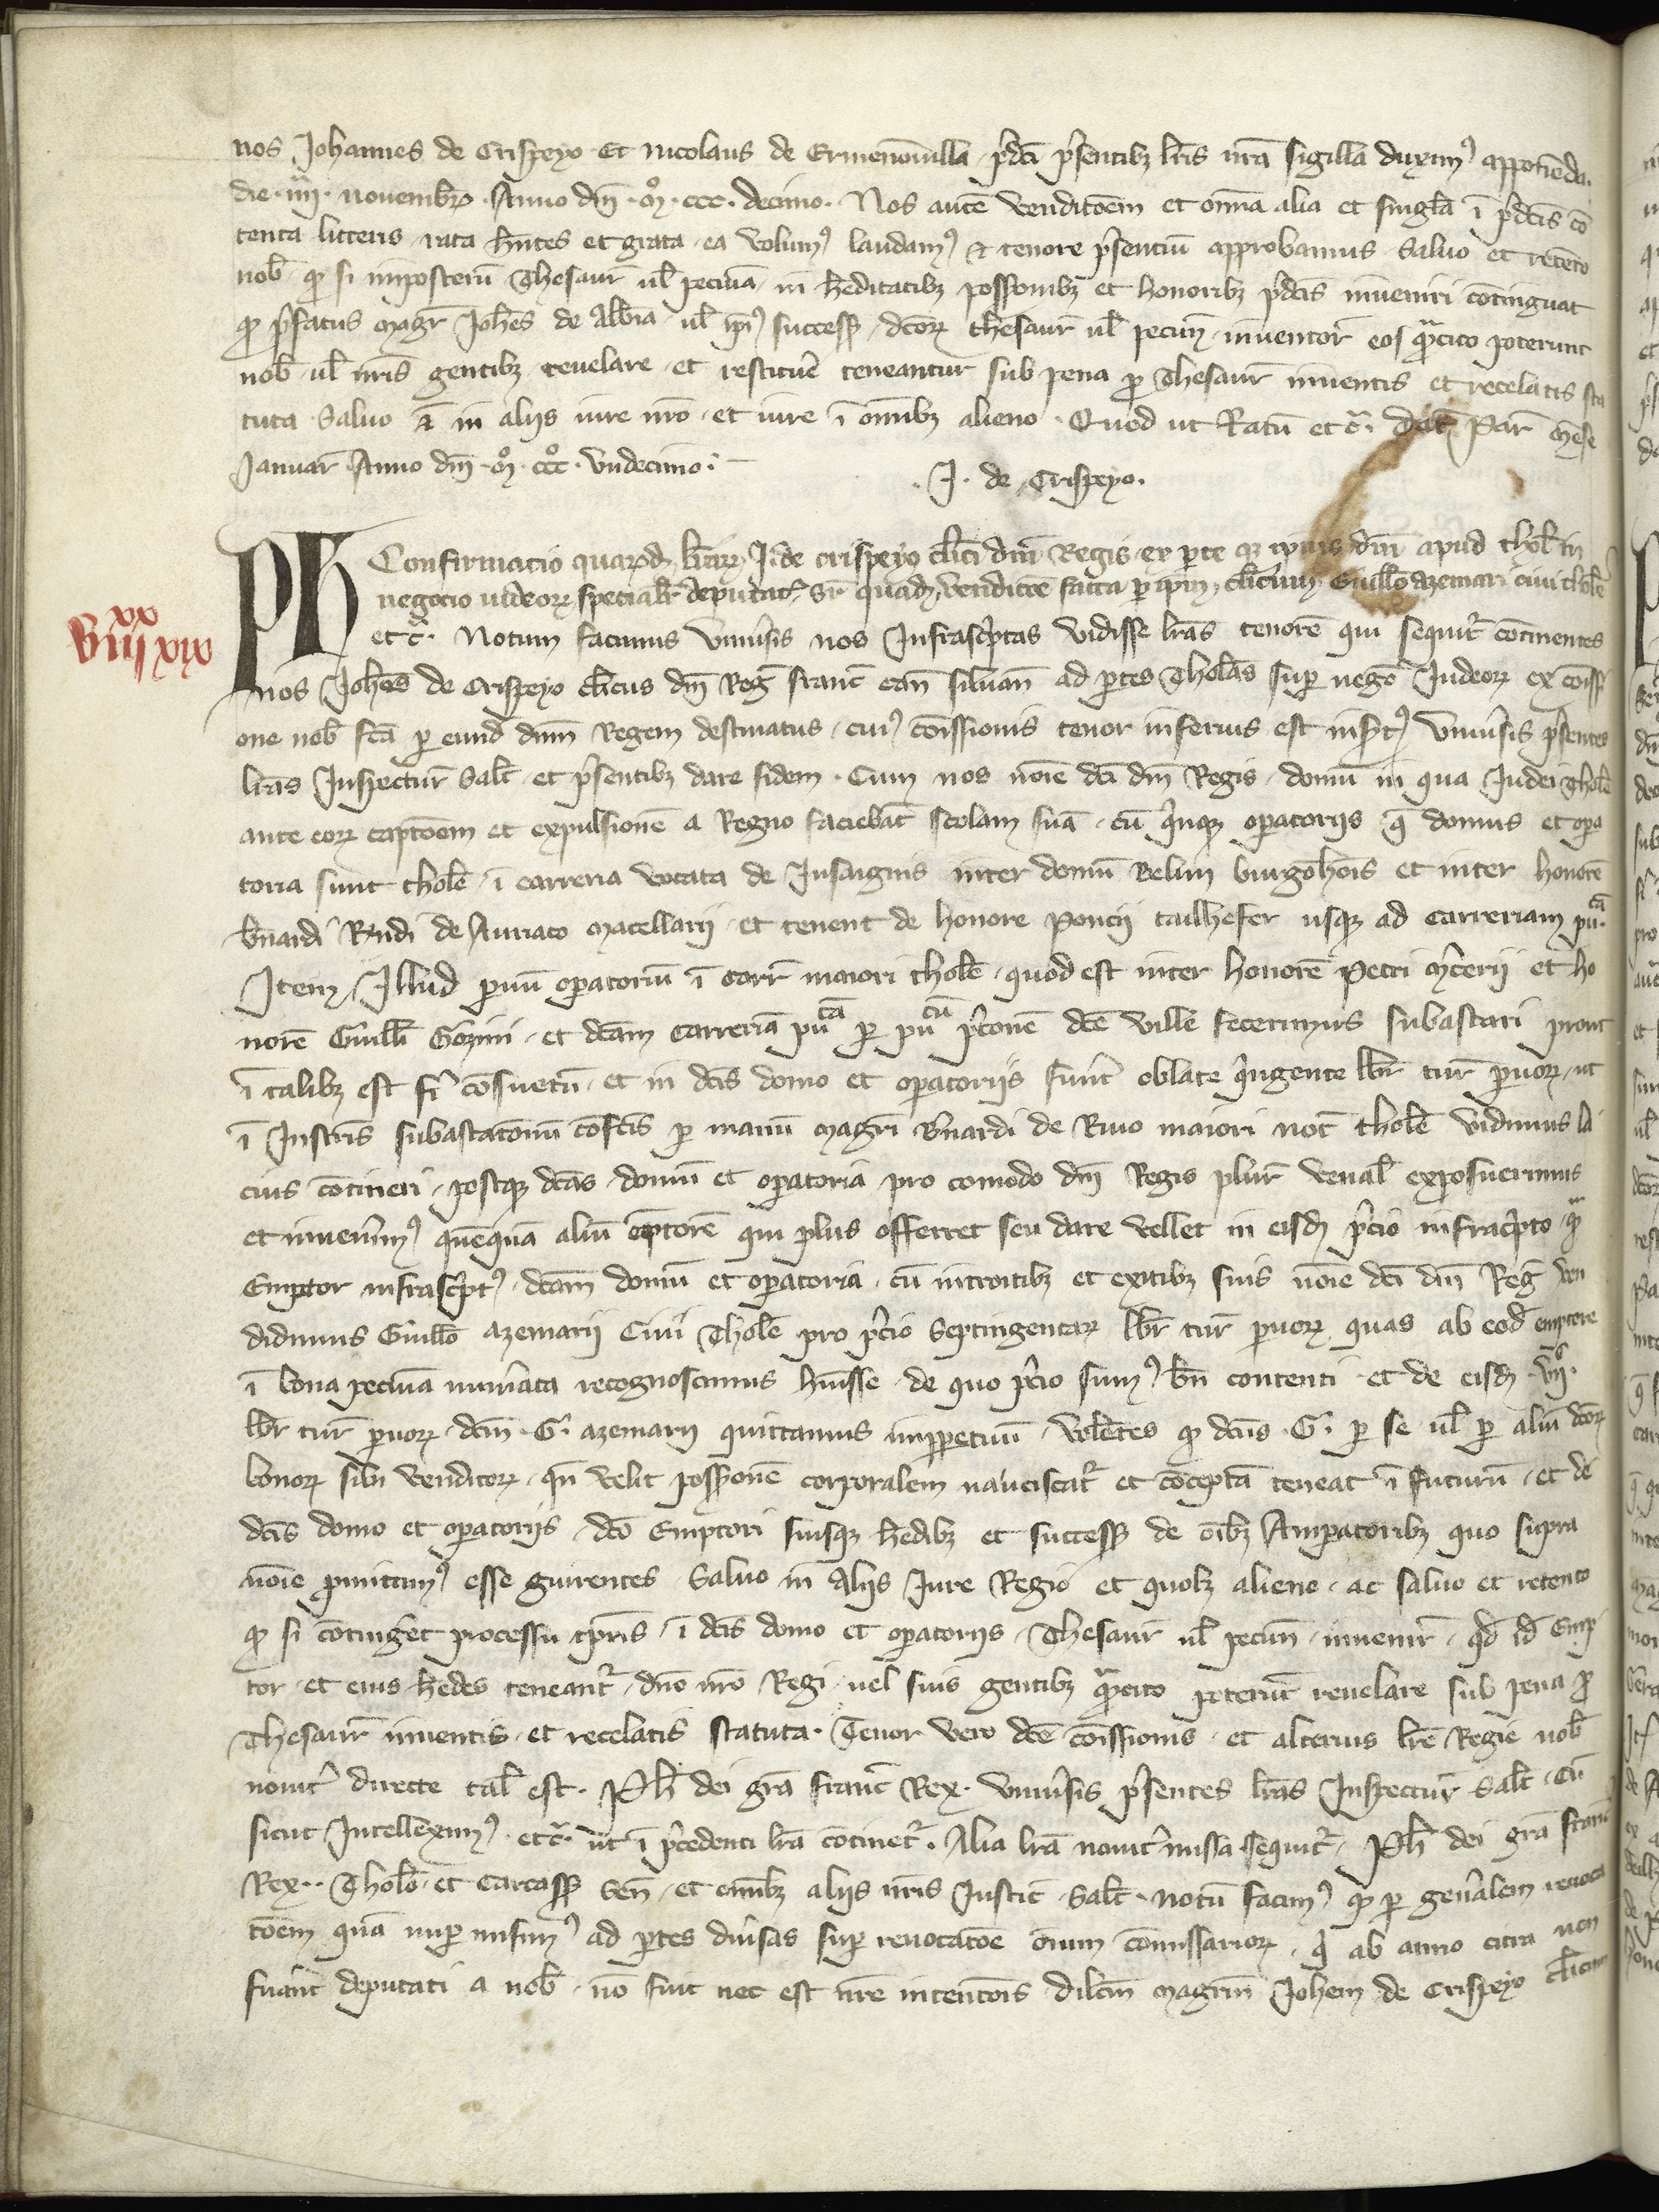 nos Johannes de Crispeyo et Nicolaus de Ermenonvilla p̄dc̄i p̄sentibꝫ lr̄is nr̄a sigilla duximꝰ apponēda
die iiii novembrꝭ Anno dn̄i mͦ ccc decimo. Nos autē venditōem et om̄ia alia et singl̄a ī p̄dc̄is cō
tenta litteris rata hn̄tes et grata ea volumꝰ laudamꝰ & tenore p̄sentiū approbamus salvo et retēto
nob̄ qꝫ si imposterū Thesaur̄ ul̄ pecūia in hēditatibꝫ possionibꝫ et honoribꝫ p̄dc̄is inveniri cōtinguat
qꝫ p̄fatus magr̄ Joh̄es de Albīa ul̄ ip̄iꝰ success̄ dc̄orꝫ thesaur̄ ul̄ pecun̄ inventor̄ eos q̄ᵃcito poterunt
nob̄ ul̄ nr̄is gentibꝫ revelare et restitue̅ teneantur sub pena ꝓ Thesaur̄ inventis et recelatis sta
tuta Salvo ā in aliis iure nr̄o et iure ī omībꝫ alieno. Quod ut Ratū etc̄. Dat̄ Par̄ mēse
Januar̄ Anno dn̄i mͦ cccͦ undecimo.
J. de Crispeyo.
viiiˣˣ xix
PH Confirmacio quarūdꝫ lr̄arꝫ J. de crispeyo cl̄ici dn̄i Regis ex ꝑte ipīus dn̄i apud thol̄ in
negocio iudeorꝫ specialit̄ deputat̄ sr̄ quadꝫ vendicōe facta ꝑ ip̄m cl̄icum Guill̄o azemari civi thol̄e
etc̄. Notum facimus Univ̄sis nos Infrascͥptas vidisse lr̄as tenorē qui sequit̄ cōtinentes
nos Joh̄es de Crispeyo cl̄icus dn̄i Reg̅ franc̄ can̄ silvan̄ ad ꝑtes Thol̄as suꝑ nego Judeorꝫ ex cōissi
one nob̄ fc̄a ꝑ eund̄ dn̄m Regem destinatus cuiꝰ cōissionis tenor inferius est insc̄ptꝰ Univ̄sis p̄sentes
lr̄as Inspectur̄ Salt̄ et p̄sentibꝫ dare fidem. Cum nos noīe dc̄i dn̄i Regis domū in qua Judei Thol̄e
ante eorꝫ captōem et expulsionē a Regno faciebāt scolam suā cū qͥnqꝫ oꝑatoriis q̄ domus et oꝑa
toria sunt thol̄e ī carreria vocata de Jusaiguis inter domū Belin burgōhōis et inter honorē
Bn̄ardi Rn̄di de Auriaco macellarii et tenent de honore Poncii tailhefer usqꝫ ad carreriam puᶜᵃ.
Item Illud ꝑvū oꝑatoriū ī carr̄ maiori thol̄e quod est inter honorē Petri mͨerii et ho
norē Guill̄i Gozini et dc̄am carreriā puᶜᵃ ꝑ puᶜū p̄conē dc̄e ville fecerimus subastari prout
ī talibꝫ est fi̅ cōsuetū et in dc̄is domo et oꝑatoriis fuīt oblate qͥngente lbr̄ tur̄ ꝑvorꝫ ut
ī Instr̄is subastatōnū cōfc̄is ꝑ manū magr̄i Bn̄ardi de Rivo maiori not̄ thol̄e vidimus la
cius cōtineri postqꝫ dc̄as domū et oꝑatoria pro comodo dn̄i Regis plur̄ venal̄ exposuerimus
et invenimꝰ quēquā aliū ēptorē qui plus offerret seu dare vellet in eisdꝫ p̄cio infrascͥpto qᵃ
Emptor infrascͥptꝰ dc̄am domū et oꝑatoria cū introitibꝫ et exitibꝫ suis noīe dc̄i dn̄i Reg̅ ven
didimus Guill̄o azemarii Civi Thol̄e pro p̄cio Septingentarꝫ lbr̄ tur̄ ꝑvorꝫ quas ab eod̄ emptore
ī bona pecūia num̄ata recognoscimus hūisse de quo p̄cio sumꝰ bn̄ contenti et de eisdꝫ viiᶜ
lbr̄ tur̄ ꝑvorꝫ dc̄m G. azemarii quittamus imꝑpetuū volētes qꝫ dc̄us G. ꝑ se ul̄ ꝑ aliū dc̄orꝫ
bonorꝫ sibi venditorꝫ qn̄ velit possionē corporalem nanciscat̄ et cōceptā teneat ī futurū et de
dc̄is domo et oꝑatoriis dc̄o Emptori suisqꝫ hēdibꝫ et success̄ de oībꝫ Amꝑatoribꝫ quo supra
noīe ꝓmittimꝰ esse guirentes Salvo in Aliis Jure Regio et quolꝫ alieno ac salvo et retento
qꝫ si cōtinget processu tp̄ris ī dc̄is domo et oꝑatoriis Thesaur̄ ul̄ pecun̄ inveniri qd̄ id̄ Emp
tor et eius hēdes teneant̄ dn̄o nr̄o Regi vel suis gentibꝫ q̄ᵃcito poterūt revelare sub pena ꝓ
Thesaur̄ inventis et recelatis statuta. Tenor vero dc̄e cōissionis et alterius lr̄e Regie nob̄
novit̄ directe tal̄ est. Ph̄ dei gr̄a franc̄ Rex. Univ̄sis p̄sentes lr̄as Inspectur̄ Salt̄. Cū
sicut Intelleximꝰ etc̄. ut ī p̄cedenti lr̄a cōtinet̄. Alia lr̄a novit̄ missa sequit̄. Ph̄ dei gr̄a franc̄
Rex. Thol̄o et Carcass̄ Sen̄ et omībꝫ aliis nr̄is Justic̄ Salt̄. Notū facimꝰ qꝫ ꝑ gen̄alem revoca
tōem quā nuꝑ misimꝰ ad ꝑtes div̄sas suꝑ revocatōe oīum cōmissariorꝫ qͥ ab anno citra non
fuāt deputati a nob̄ nō fuit nec est nr̄e intentōis dilc̄m magr̄m Joh̄em de Crispeyo cl̄icum